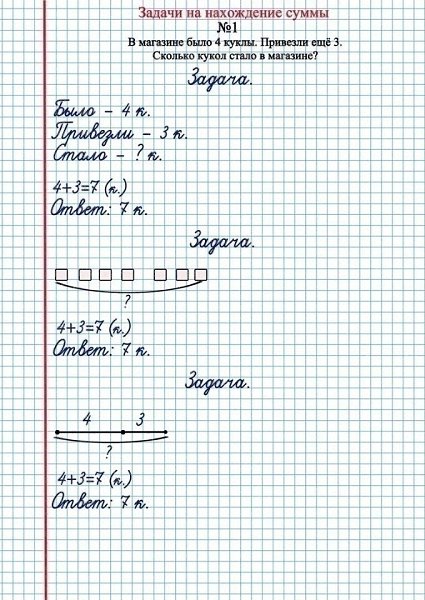 Задачи на нахождение суммы
№1
В магазине было 4 куклы. Привезли ещё 3.
Сколько кукол стало в магазине?
Задача.
Было – 4 к.
Привезли – 3 к.
Стало – ? к.
4+3=7 (к.)
Ответ: 7 к.
Задача.
?
4+3=7 (к.)
Ответ: 7 к.
Задача.
4 3
?
4+3=7 (к.)
Ответ: 7 к.